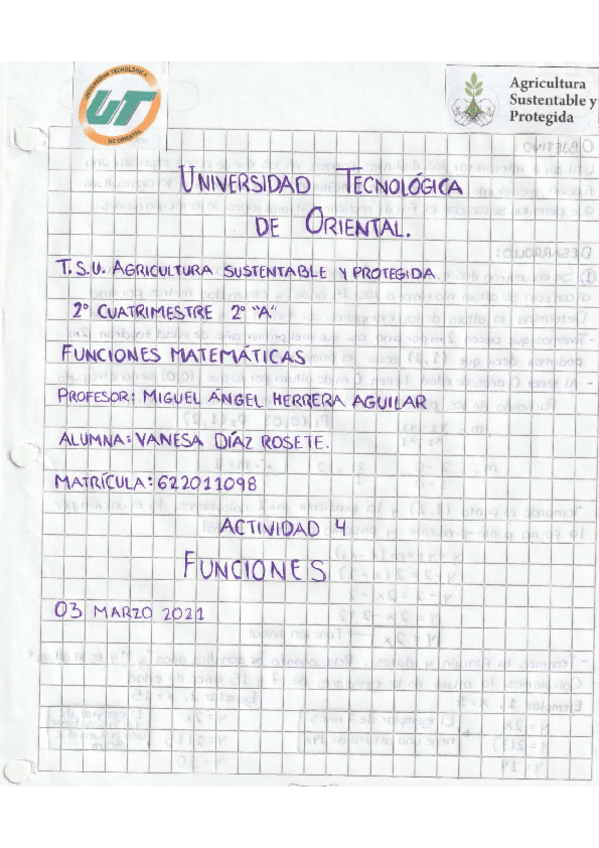 UNIVERSIDAD TECNOLÓGICA
DE ORIENTAL
UT
Agricultura
Sustentable y
Protegida
UNIVERSIDAD TECNOLÓGICA
DE ORIENTAL.
T.S.U. AGRICULTURA SUSTENTABLE Y PROTEGIDA
2° CUATRIMESTRE 2° "A"
FUNCIONES MATEMÁTICAS
PROFESOR: MIGUEL ÁNGEL HERRERA AGUILAR
ALUMNA: VANESA DÍAZ ROSETE.
MATRÍCULA: 622011098
ACTIVIDAD 4
FUNCIONES
03 MARZO 2021